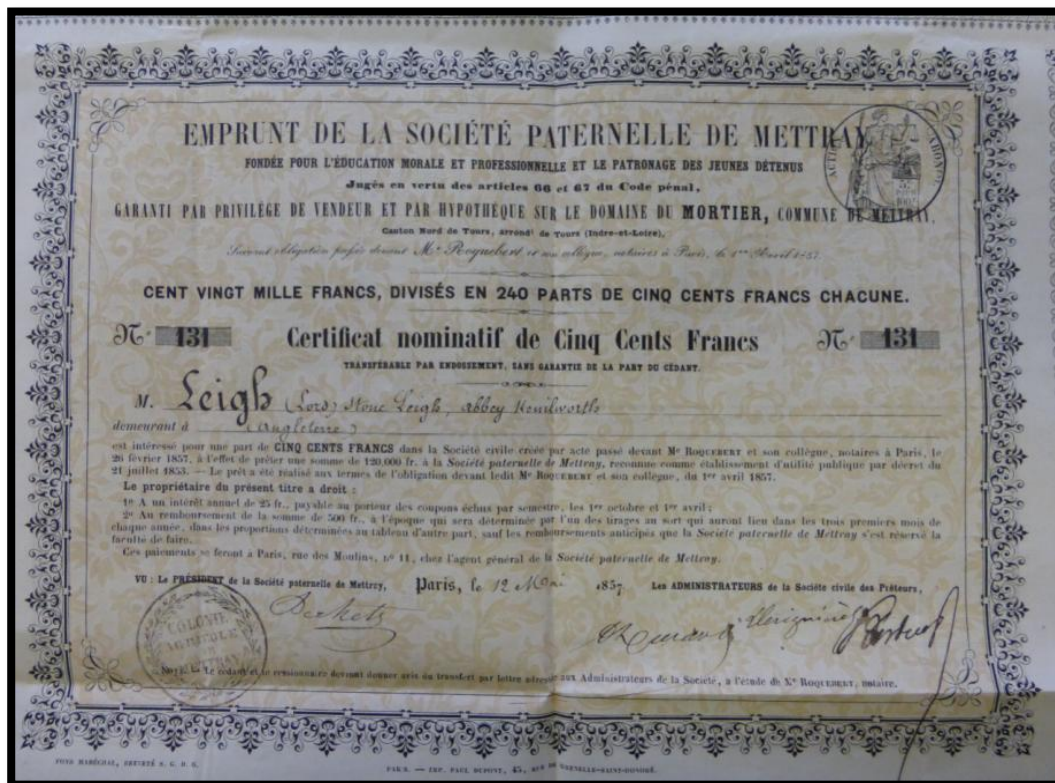 EMPRUNT DE LA SOCIÉTÉ PATERNELLE DE METTRAY
FONDÉE POUR L'ÉDUCATION MORALE ET PROFESSIONNELLE ET LE PATRONAGE DES JEUNES DÉTENUS
Jugés en vertu des articles 66 et 67 du Code pénal,
GARANTI PAR PRIVILÉGE DE VENDEUR ET PAR HYPOTHÈQUE SUR LE DOMAINE DU MORTIER, COMMUNE DE METTRAY,
Canton Nord de Tours, arrondt de Tours (Indre-et-Loire),
Suivant obligation passée devant Me Roquebert et son collègue, notaires à Paris, le 1er Avril 1857.
CENT VINGT MILLE FRANCS, DIVISÉS EN 240 PARTS DE CINQ CENTS FRANCS CHACUNE.
No 131 Certificat nominatif de Cinq Cents Francs No 131
TRANSFÉRABLE PAR ENDOSSEMENT, SANS GARANTIE DE LA PART DU CÉDANT.
M. Leigh (Lord) Stone Leigh, Abbey Kenilworth
demeurant à (Angleterre)
est intéressé pour une part de CINQ CENTS FRANCS dans la Société civile créée par acte passé devant Me ROQUEBERT et son collègue, notaires à Paris, le
26 février 1857, à l'effet de prêter une somme de 120,000 fr. à la Société paternelle de Mettray, reconnue comme établissement d'utilité publique par décret du
21 juillet 1853. — Le prêt a été réalisé aux termes de l'obligation devant ledit Me ROQUEBERT et son collègue, du 1er avril 1857.
Le propriétaire du présent titre a droit :
1o A un intérêt annuel de 25 fr., payable au porteur des coupons échus par semestre, les 1er octobre et 1er avril ;
2o Au remboursement de la somme de 500 fr., à l'époque qui sera déterminée par l'un des tirages au sort qui auront lieu dans les trois premiers mois de
chaque année, dans les proportions déterminées au tableau d'autre part, sauf les remboursements anticipés que la Société paternelle de Mettray s'est réservé la
faculté de faire.
Ces paiements se feront à Paris, rue des Moulins, no 11, chez l'agent général de la Société paternelle de Mettray.
VU : Le PRÉSIDENT de la Société paternelle de Mettray, Paris, le 12 Mai 1857 Les ADMINISTRATEURS de la Société civile des Prêteurs,
DeMetz
COLONIE
AGRICOLE
DE
METTRAY
NOTA. Le cédant et le cessionnaire devront donner avis du transfert par lettre adressée aux Administrateurs de la Société, à l'étude de Me ROQUEBERT, notaire.
FOND MARÉCHAL, BREVETÉ S. G. D. G.
PARIS. — IMP. PAUL DUPONT, 45, RUE DE GRENELLE-SAINT-HONORÉ.